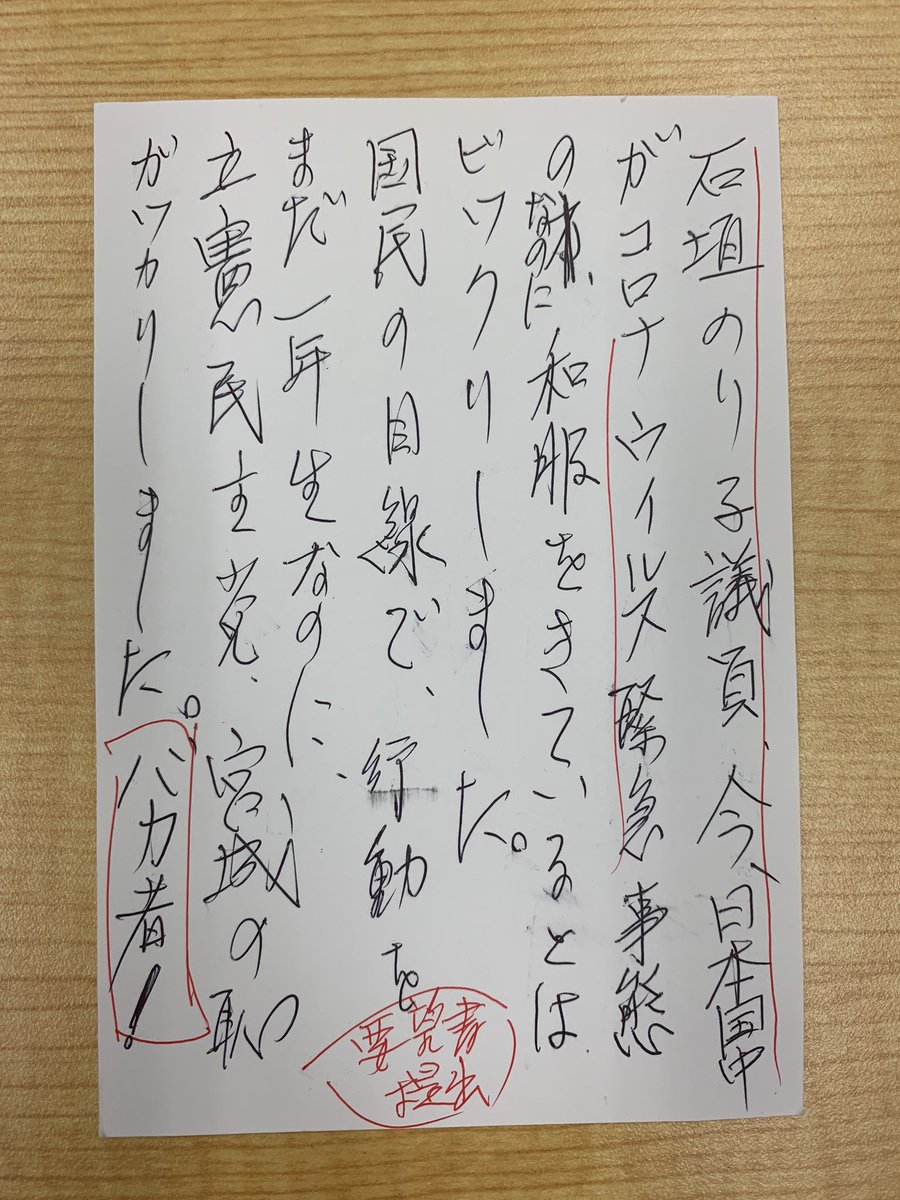 石垣のり子議員、今、日本国中
がコロナウイルス緊急事態
のなのに、和服をきているとは
ビックリしました。
国民の目線で、行動を
まだ一年生なのに、
立憲民主党、宮城の恥
ガッカリしました。バカ者!
要望書
提出